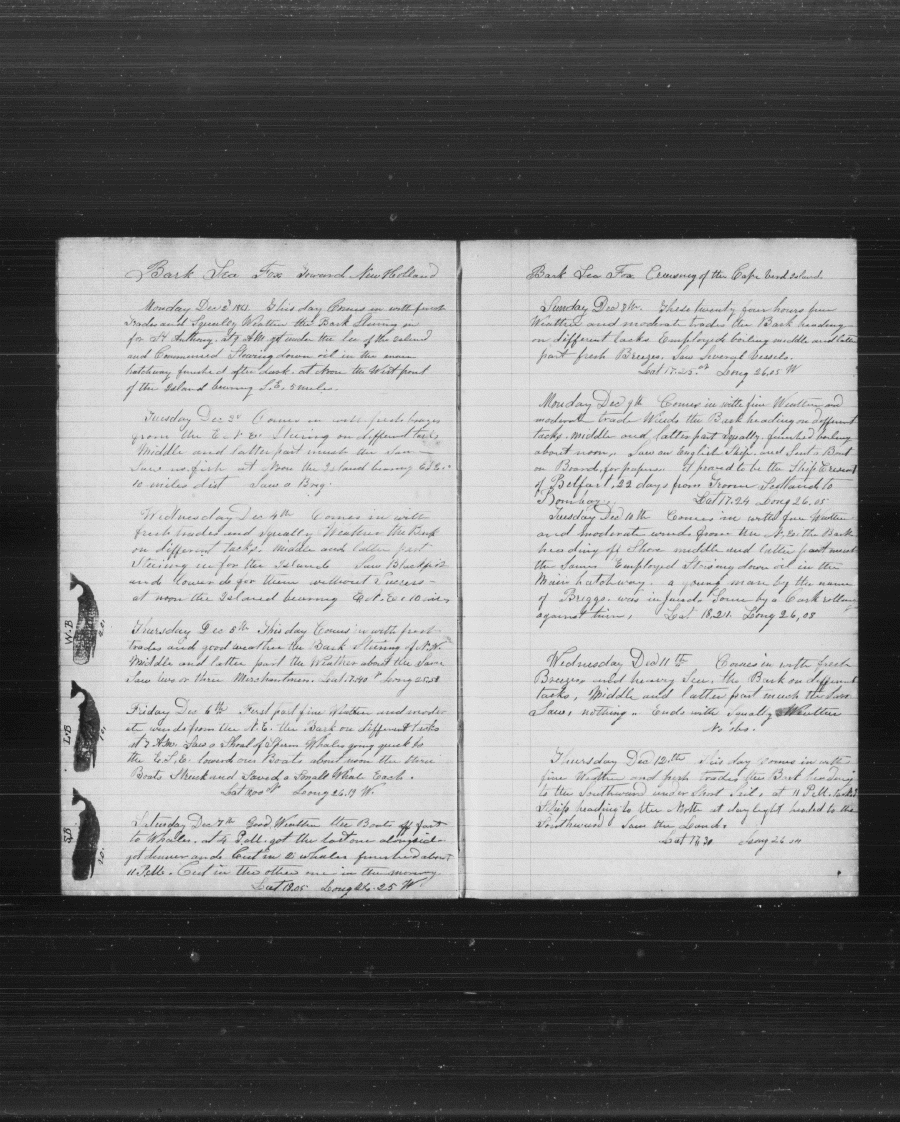 Bark Sea Fox Toward New Holland
Monday Dec 2d 1861. This day Comes in with fresh
trades and Squally Weather the Bark Stearing in
for St Anthony. At 9 A.M. got under the lee of the Island
and Commenced Stowing down oil in the main
hatchway finished after dark. at Noon the West point
of the Island bearing S.E. 8 miles.
Tuesday Dec 3d Comes in with fresh breezes
from the E.N.E. Stearing on different tacks
Middle and latter part much the Same
Saw no fish at Noon the Island bearing E.S.E.
10 miles dist Saw a Brig.
Wednesday Dec 4th Comes in with
fresh trades and Squally Weather the Bark
on different tacks. Middle and latter part
Stearing in for the Island Saw Blackfish
and lowered for them without Success
at noon the Island bearing E.N.E. 10 miles
Thursday Dec 5th This day Comes in with fresh
trades and good weather the Bark Stearing N.N.W.
Middle and latter part the Weather about the Same
Saw two or three Merchantmen. Lat. 17.40 Long 25.58
Friday Dec 6th First part fine Weather and moder
ate winds from the N.E. the Bark on different tacks
at 7 A.M. Saw a Shoal of Sperm Whales going quick to
the E.S.E. lowered our Boats about noon the three
Boats Struck and Saved a Small Whale Each.
Long 26.19 W.
Saturday Dec 7th Good Weather the Boats off fast
to Whales. at 4 P.M. got the last one alongside
got dinner and Cut in 2 whales finished about
11 P.M. Cut in the other one in the morning.
Lat 18.05 Long 26.25 W
W.B
L.B
S.B.
10.
Bark Sea Fox Cruising off the Cape Verd Island
Sunday Dec 8th. These twenty four hours fine
Weather and moderate trades the Bark heading
on different tacks Employed boiling middle and latter
part fresh Breezes. Saw Several Vessels.
Lat 17.25 Long 26.05 W
Monday Dec 9th Comes in with fine Weather and
moderate trade Winds the Bark heading on different
tacks middle and latter part Squally finished boiling
about noon. Saw an English Ship and Sent a Boat
on Board for papers. It proved to be the Ship Crescent
of Belfast, 22 days from Troon Scotland to
Bombay. Lat 17.24 Long 26.05
Tuesday Dec 10th Comes in with fine Weather
and moderate winds from the N.E. the Bark
heading off Shore middle and latter part much
the Same Employed Stowing down oil in the
Main hatchway. a young man by the name
of Briggs was injured Some by a Cask rolling
against him. Lat 18.21 Long 26.08
Wednesday Dec 11th Comes in with fresh
Breezes and heavy Sea, the Bark on different
tacks, Middle and latter part much the Same
Saw, nothing. Ends with Squally Weather
No obs.
Thursday Dec 12th This day comes in with
fine Weather and fresh trades the Bark heading
to the Southward under Short Sail, at 11 P.M. tacked
Ship heading to the North at daylight headed to the
Southward Saw the Land.
Lat 17.30 Long 26